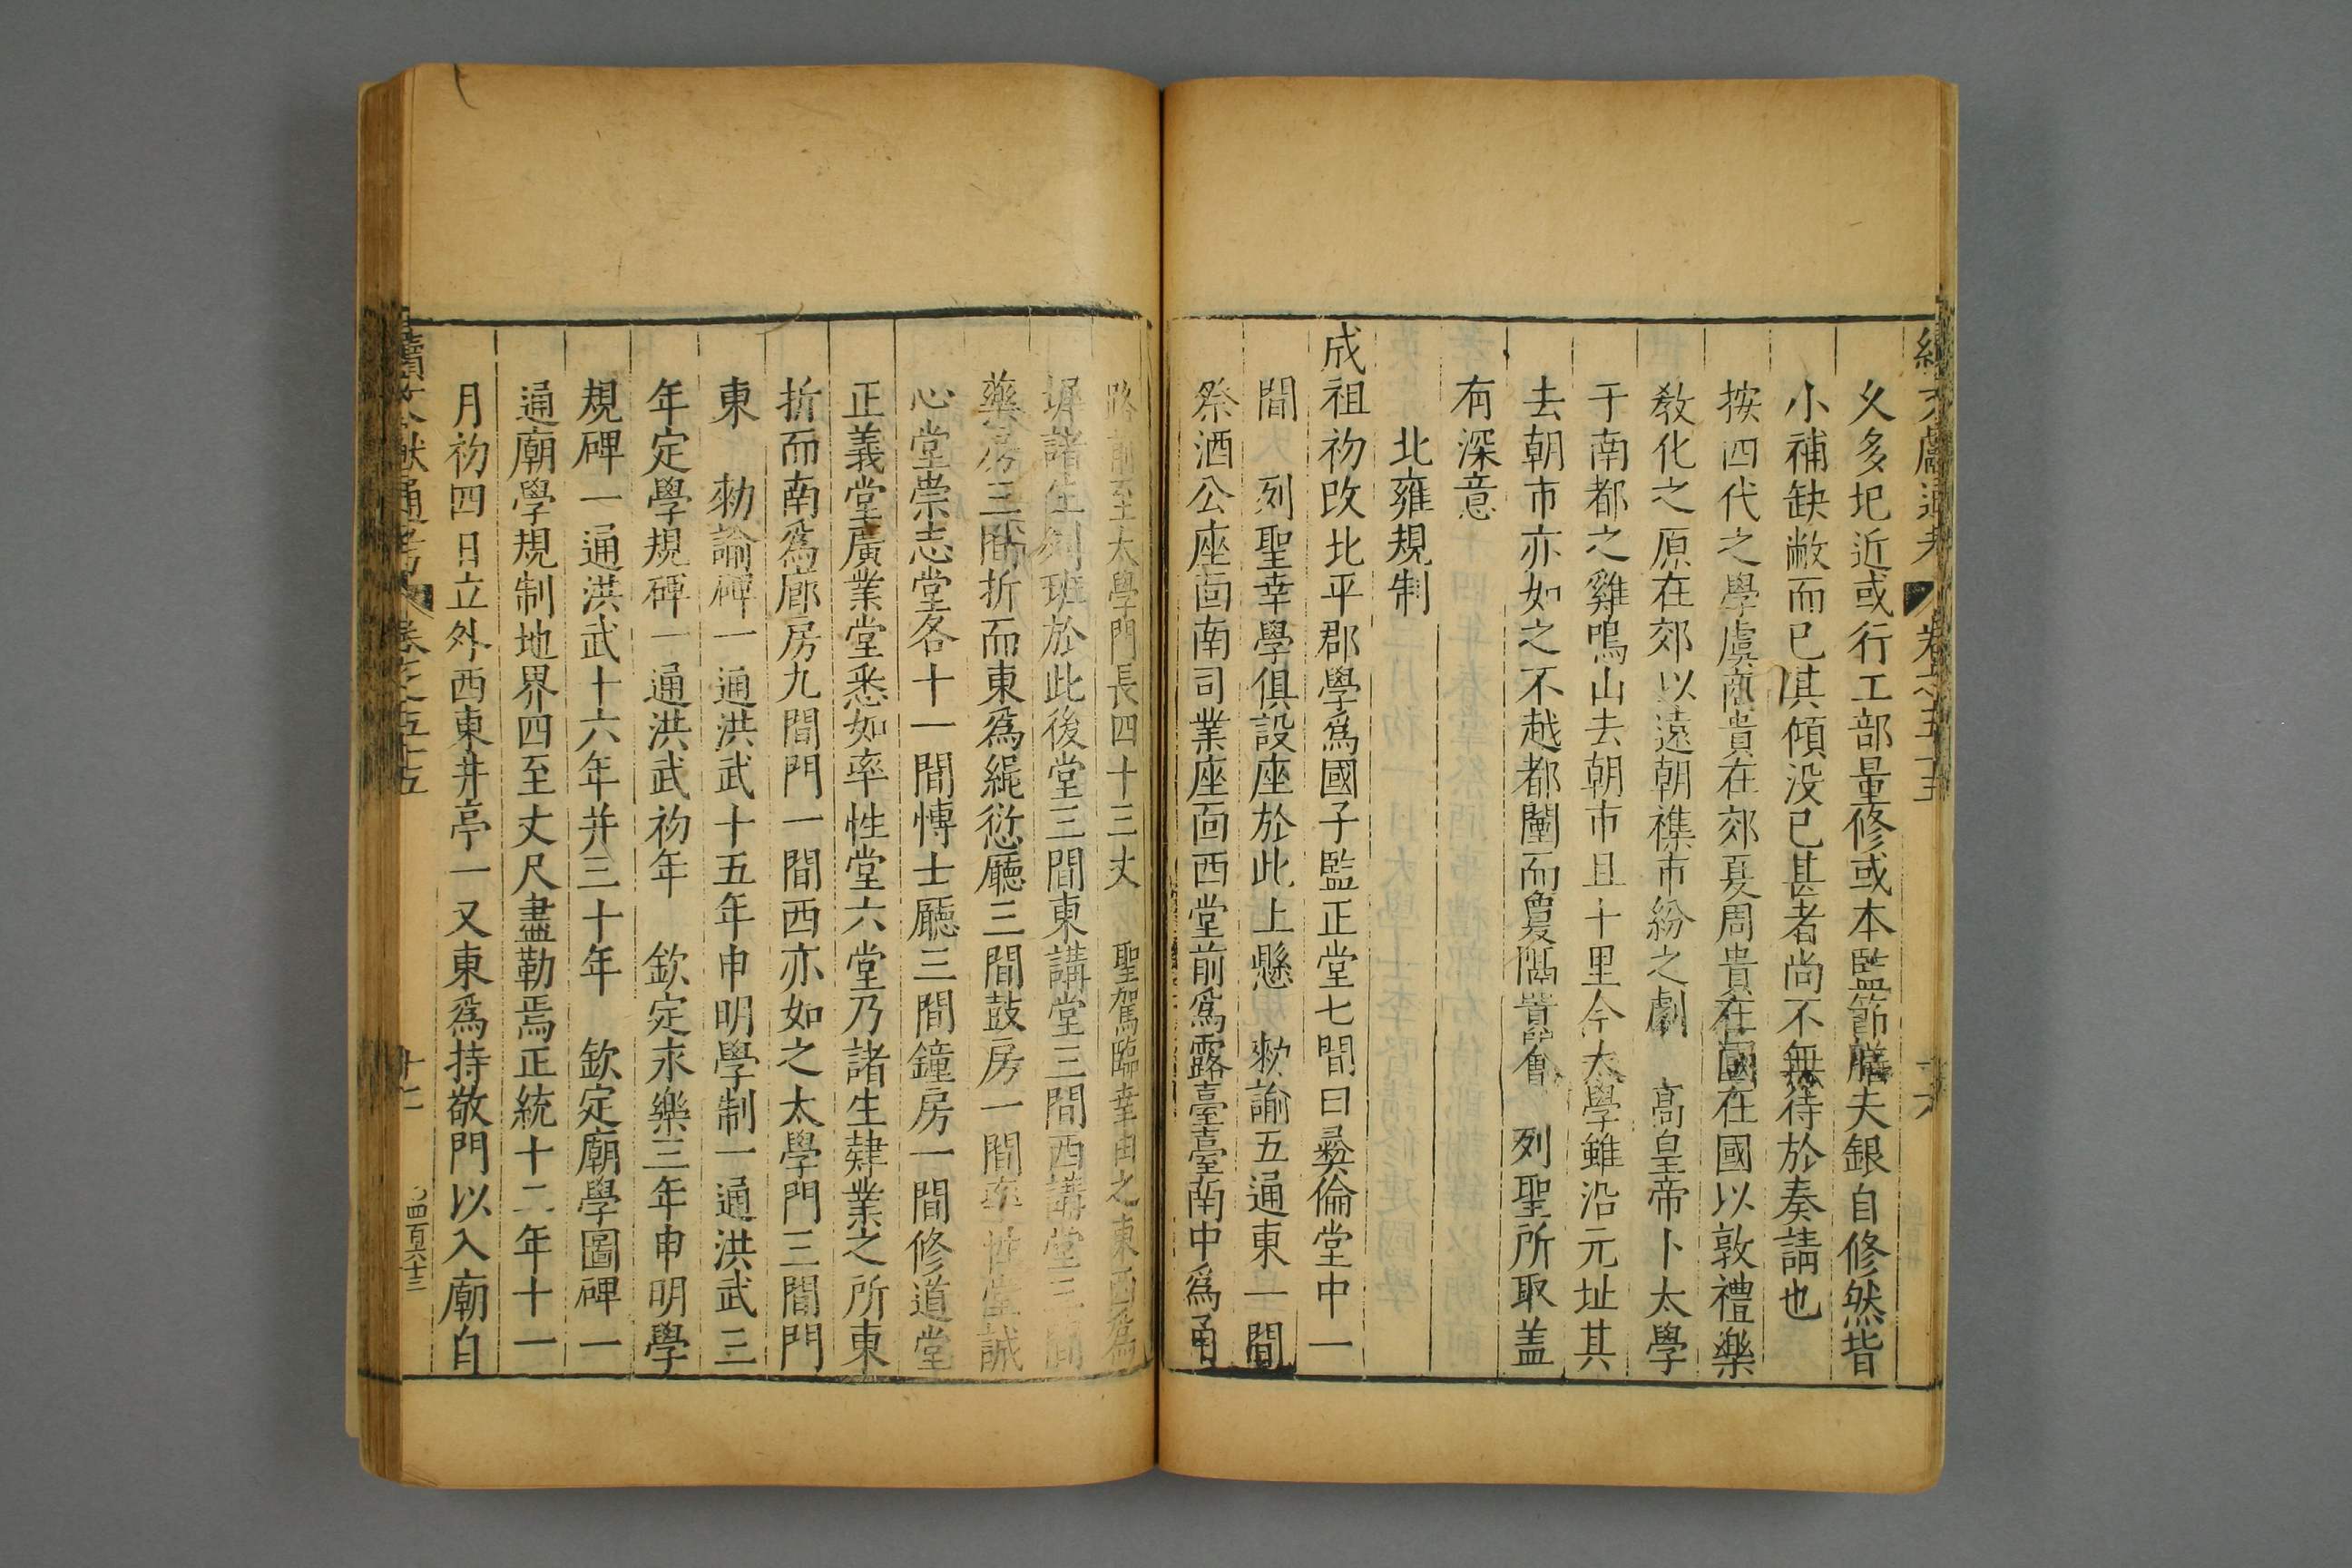 續文獻通考 卷之五十五 十六
久多圮近或行工部量修或本監節膳夫銀自修然皆
小補缺敝而已其傾沒已甚者尚不無待於奏請也
按四代之學虞商貴在郊夏周貴在國在國以敦禮樂
教化之原在郊以遠朝襍市紛之劇 高皇帝卜太學
于南都之雞鳴山去朝市且十里今太學雖沿元址其
去朝市亦如之不越都闉而敻隔嚻 列聖所取盖
有深意
北雍規制
成祖初改北平郡學爲國子監正堂七間曰彜倫堂中一
間 列聖幸學俱設座於此上懸 勑諭五通東一間
祭酒公座面南司業座面西堂前爲露臺臺南中爲甬
路前至太學門長四十三丈 聖駕臨幸由之東西爲
墀諸生列班於此後堂三間東講堂三間西講堂三間
藥房三間折而東爲繩愆廳三間鼓房一間率性堂誠
心堂崇志堂各十一間博士廳三間鐘房一間修道堂
正義堂廣業堂悉如率性堂六堂乃諸生肄業之所東
折而南爲廊房九間門一間西亦如之太學門三間門
東 勑諭碑一通洪武十五年申明學制一通洪武三
年定學規碑一通洪武初年 欽定永樂三年申明學
規碑一通洪武十六年并三十年 欽定廟學圖碑一
通廟學規制地界四至丈尺盡勒焉正統十二年十一
月初四日立外西東井亭一又東爲持敬門以入廟自
續文獻通考 卷之五十五 十七 四百六十三